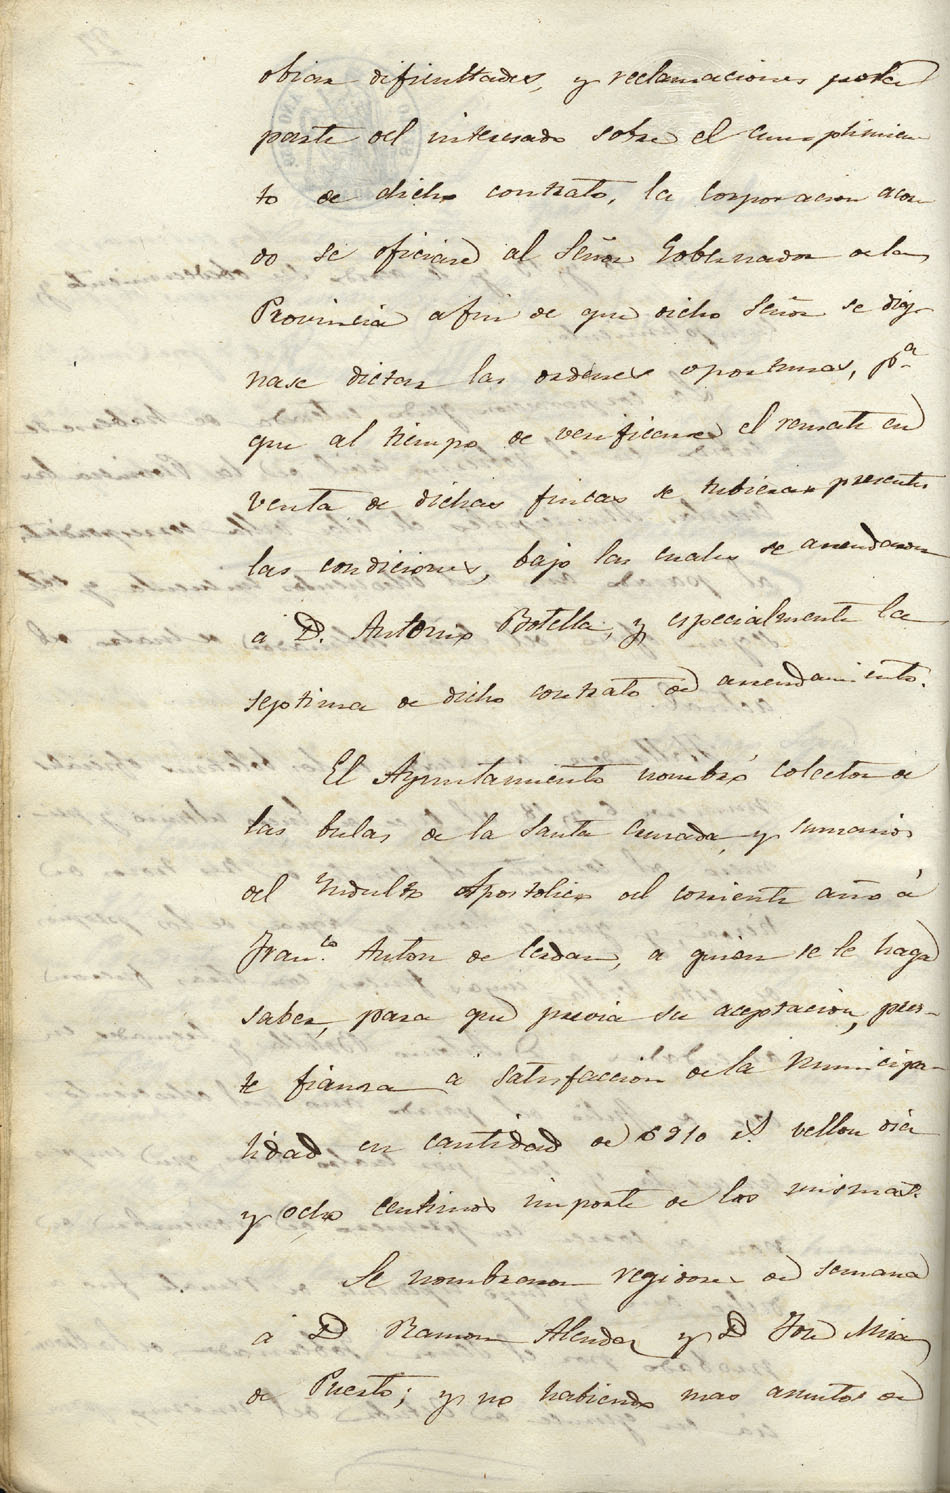 obiar dificultades, y reclamaciones por la
parte del interesado sobre el cumplimien
to de dicho contrato, la Corporacion acor
do se oficiase al Señor Gobernador de la
Provincia afin de que dicho Señor se dig-
nase dictar las ordenes oportunas, pª
que al tiempo de verificarse el remate en
venta de dichas fincas se tubieran presentes
las condiciones, bajo las cuales se arrendaron
á D. Antonio Botella, y especialmente la
septima de dicho contrato de arrendamiento.
El Ayuntamiento nombró colector de
las bulas de la Santa Cruzada, y sumarios
del Yndulto Apostolico del corriente año á
Fran.co Anton de Cerdan, a quien se le haga
saber, para que previa su aceptacion, pres-
te fianza á satisfaccion de la Municipa-
lidad en cantidad de 6910 rs vellon diez
y ocho centimos importe de las mismas.
Se nombraron regidores de semana
á D Ramon Alenda y D José Mira
de Puerto; y no habiendo mas asuntos de